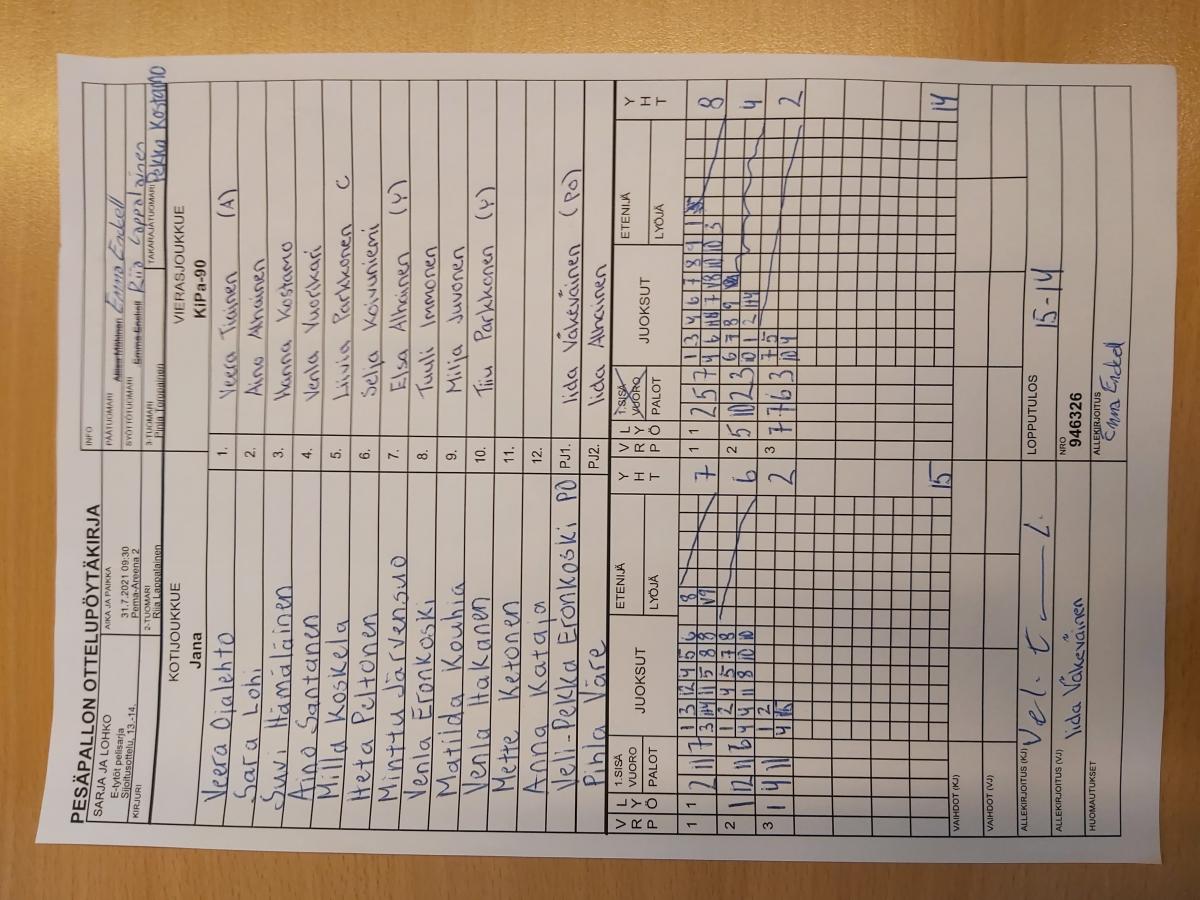 PESÄPALLON OTTELUPÖYTÄKIRJA
SARJA JA LOHKO
E-tytöt pelisarja
Sijoitusottelu, 13.-14.
AIKA JA PAIKKA
31.7.2021 09:30
Pema-Areena 2
INFO
PÄÄTUOMARI
Emma Enckell
SYÖTTÖTUOMARI Emma Enckell Riia Lappalainen
KIRJURI
2-TUOMARI
Riia Lappalainen
3-TUOMARI
Pinla Torppainen
TAKARAJATUOMARI
Pekka Kostamo
KOTIJOUKKUE
Jana
VIERASJOUKKUE
KiPa-90
Veera Ojalehto 1. Veera Tiainen (A)
Sara Lohi 2. Aino Alhainen
Suvi Hämäläinen 3. Hanna Kostamo
Aino Santanen 4. Venla Vuorikari
Milla Koskela 5. Liivia Parkkonen C
Heta Peltonen 6. Selja Koivuniemi
Minttu Järvensuo 7. Elsa Alhainen (Y)
Venla Eronkoski 8. Tuuli Immonen
Matilda Kouhia 9. Milja Juvonen
Venla Hakanen 10. Tiiu Parkkonen (Y)
Mette Ketonen 11.
Anna Kataja 12.
Veli-Pekka Eronkoski PO PJ1. Iida Väkeväinen (PO)
Pihla Väre PJ2. Iida Alhainen
VRP LYÖ 1.SISÄ VUORO PALOT JUOKSUT ETENIJÄ LYÖJÄ YHT
VRP LYÖ 1.SISÄ VUORO PALOT JUOKSUT ETENIJÄ LYÖJÄ YHT
1 1 2 11 7 1 3 12 4 5 6 8 7
3 11 5 8 8
1 1 2 5 7 1 3 4 6 7 8 9 1 8
2 1 12 11 6 1 2 4 5 7 8 6
4 4 11 8 10 10
2 5 10 2 3 6 7 8 9 4
10 1 2
3 1 4 11 1 2 2
3 7 7 6 3 7 5 2
10 4
15
14
VAIHDOT (KJ)
VAIHDOT (VJ)
ALLEKIRJOITUS (KJ)
LOPPUTULOS 15-14
ALLEKIRJOITUS (VJ)
Iida Väkeväinen
NRO
946326
HUOMAUTUKSET
ALLEKIRJOITUS
Emma Enckell